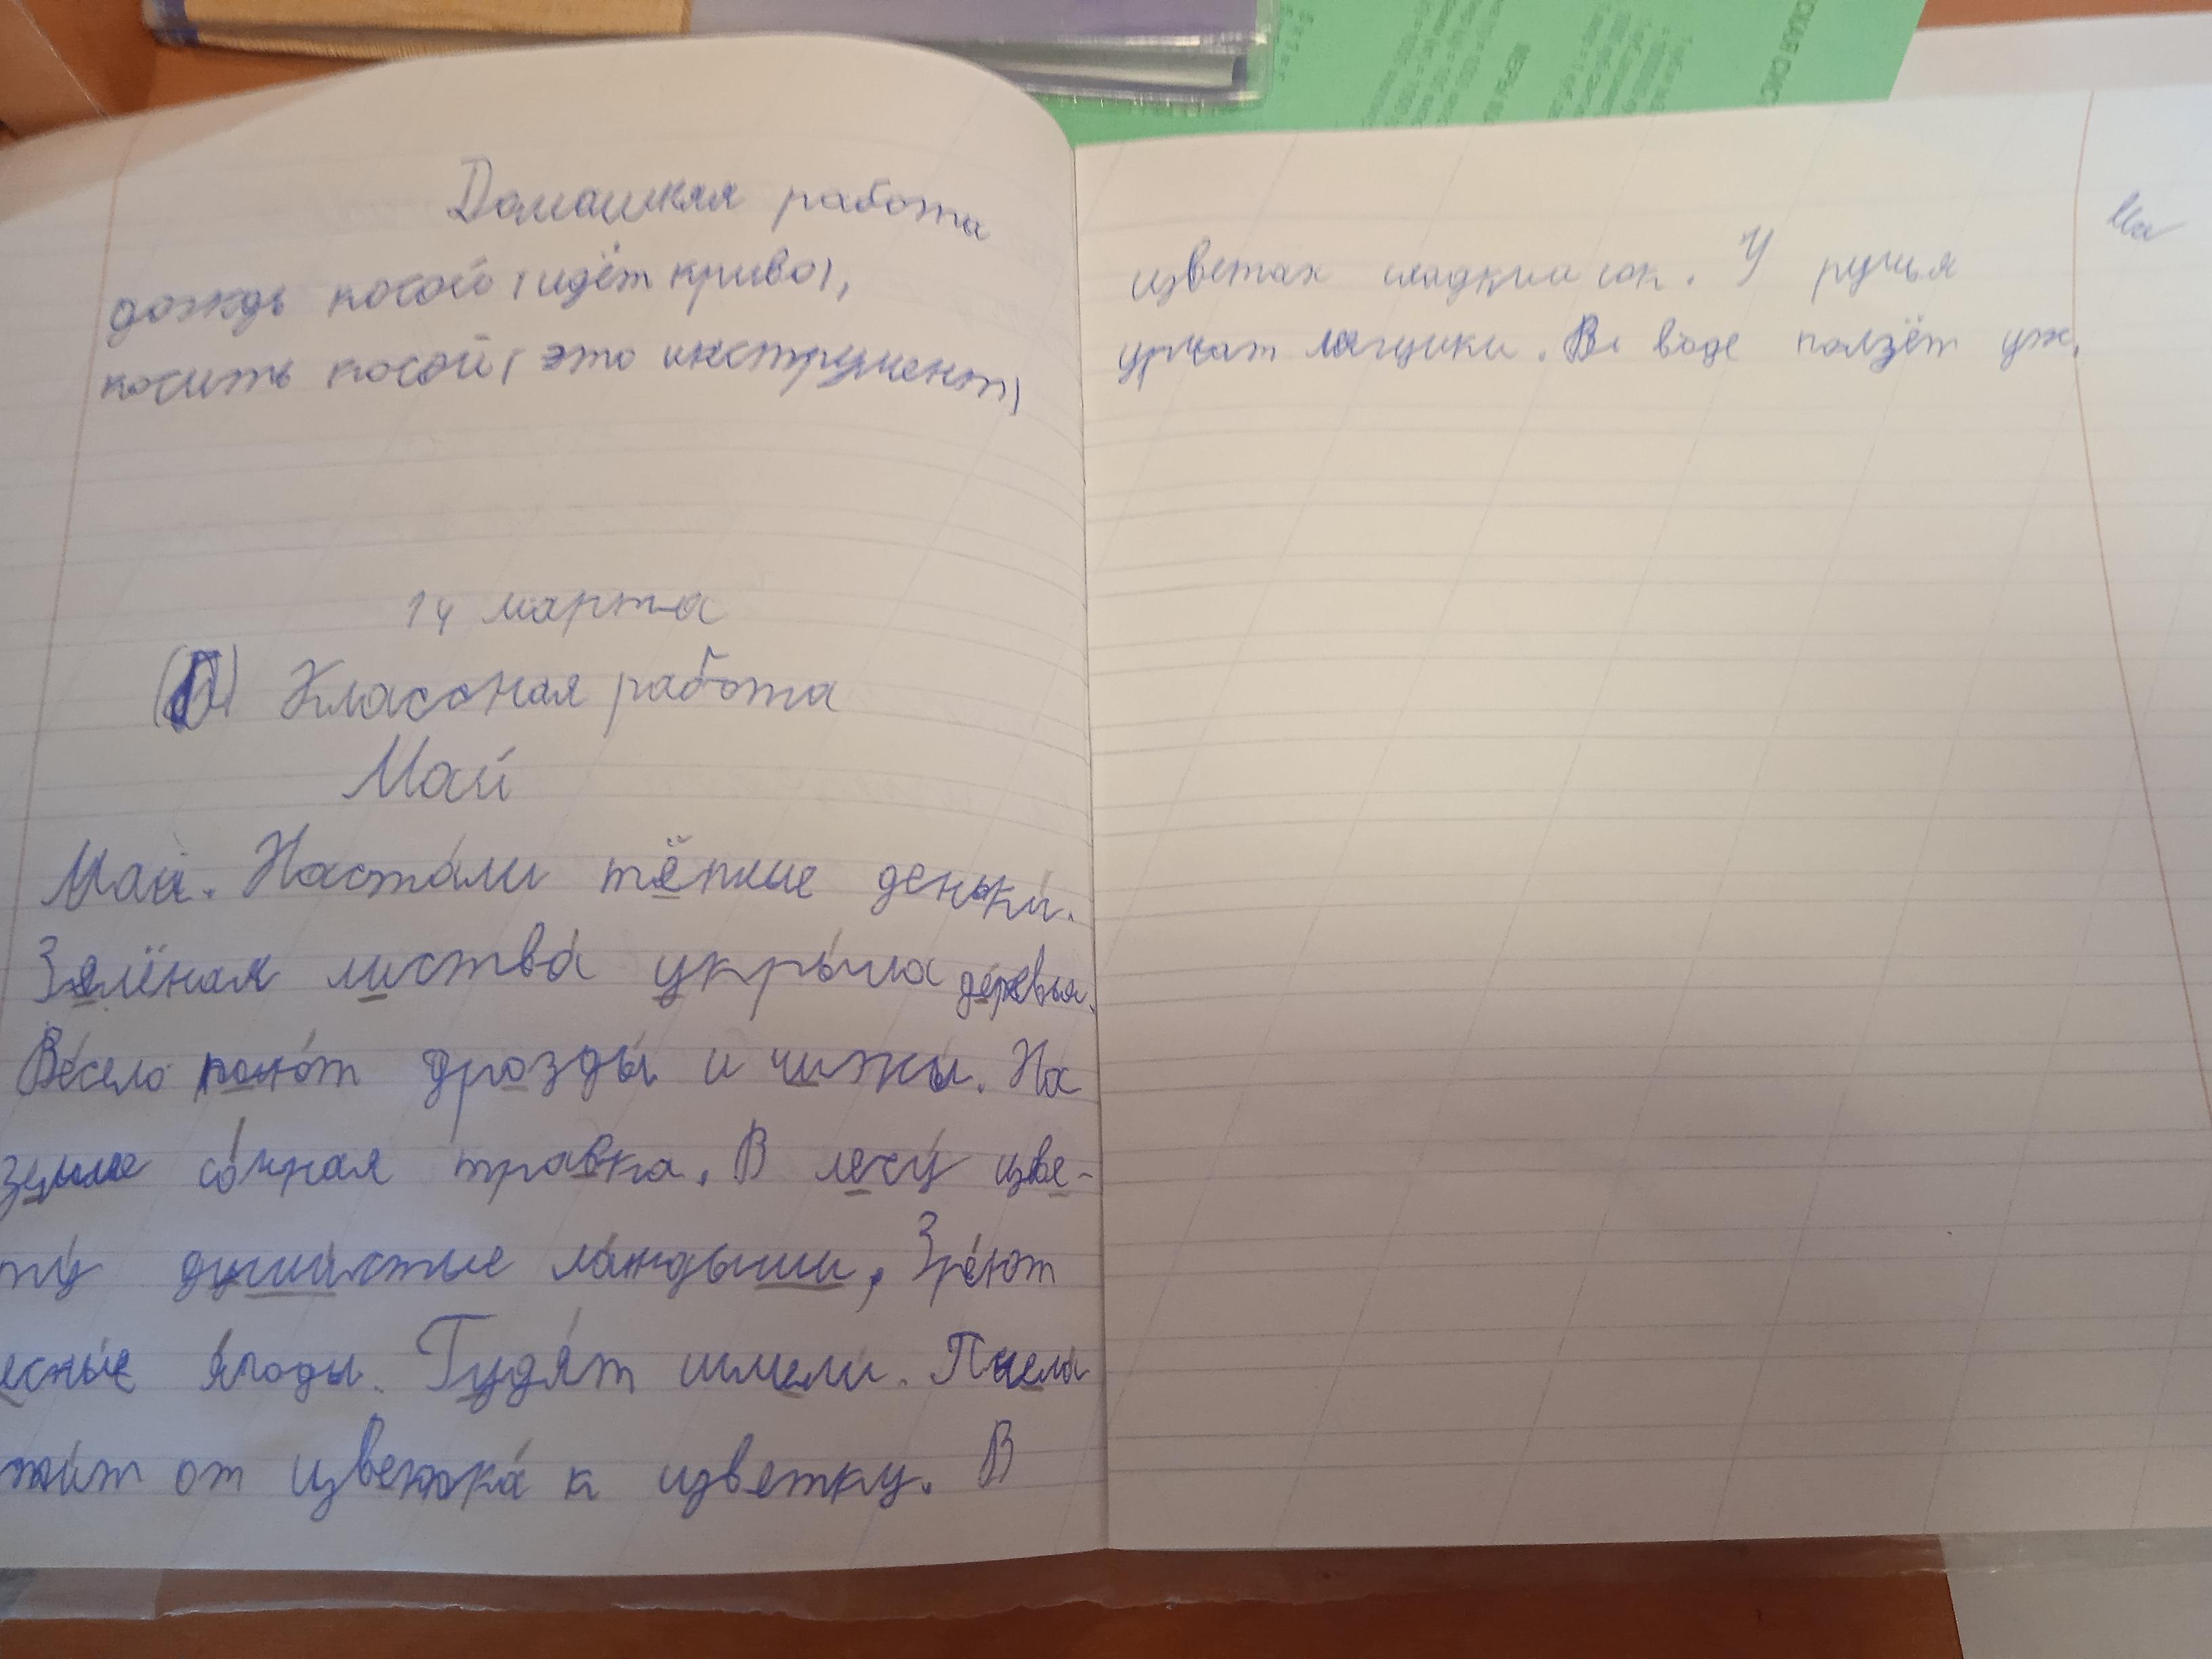 Домашкяя работа
дождь косой (идёт криво),
косить косой (это инструмент)
14 марта
Классная работа
Май
Май. Настали тёплые деньки.
Зялёная листва укрыла деревья.
Весело поют дрозды и чижы. На
земле сочная травка. В лесу цве-
ту душистые ландыши, Зреют
есные ягоды. Гудят шмели. Пчела
от цветка к цветку. В
цветах сладкий сок. У ручья
урчат лягушки. В воде ползёт уж.